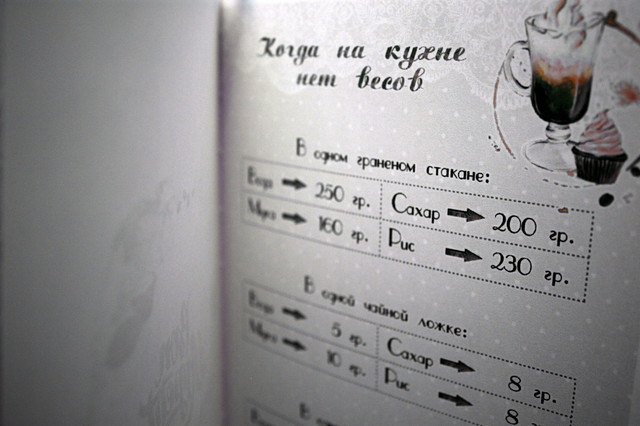 Когда на кухне
нет весов
В одном граненом стакане:
Вода 250 гр. Сахар 200 гр.
Мука 160 гр. Рис 230 гр.
В одной чайной ложке:
Вода 5 гр. Сахар 8 гр.
Мука 10 гр. Рис 8
В